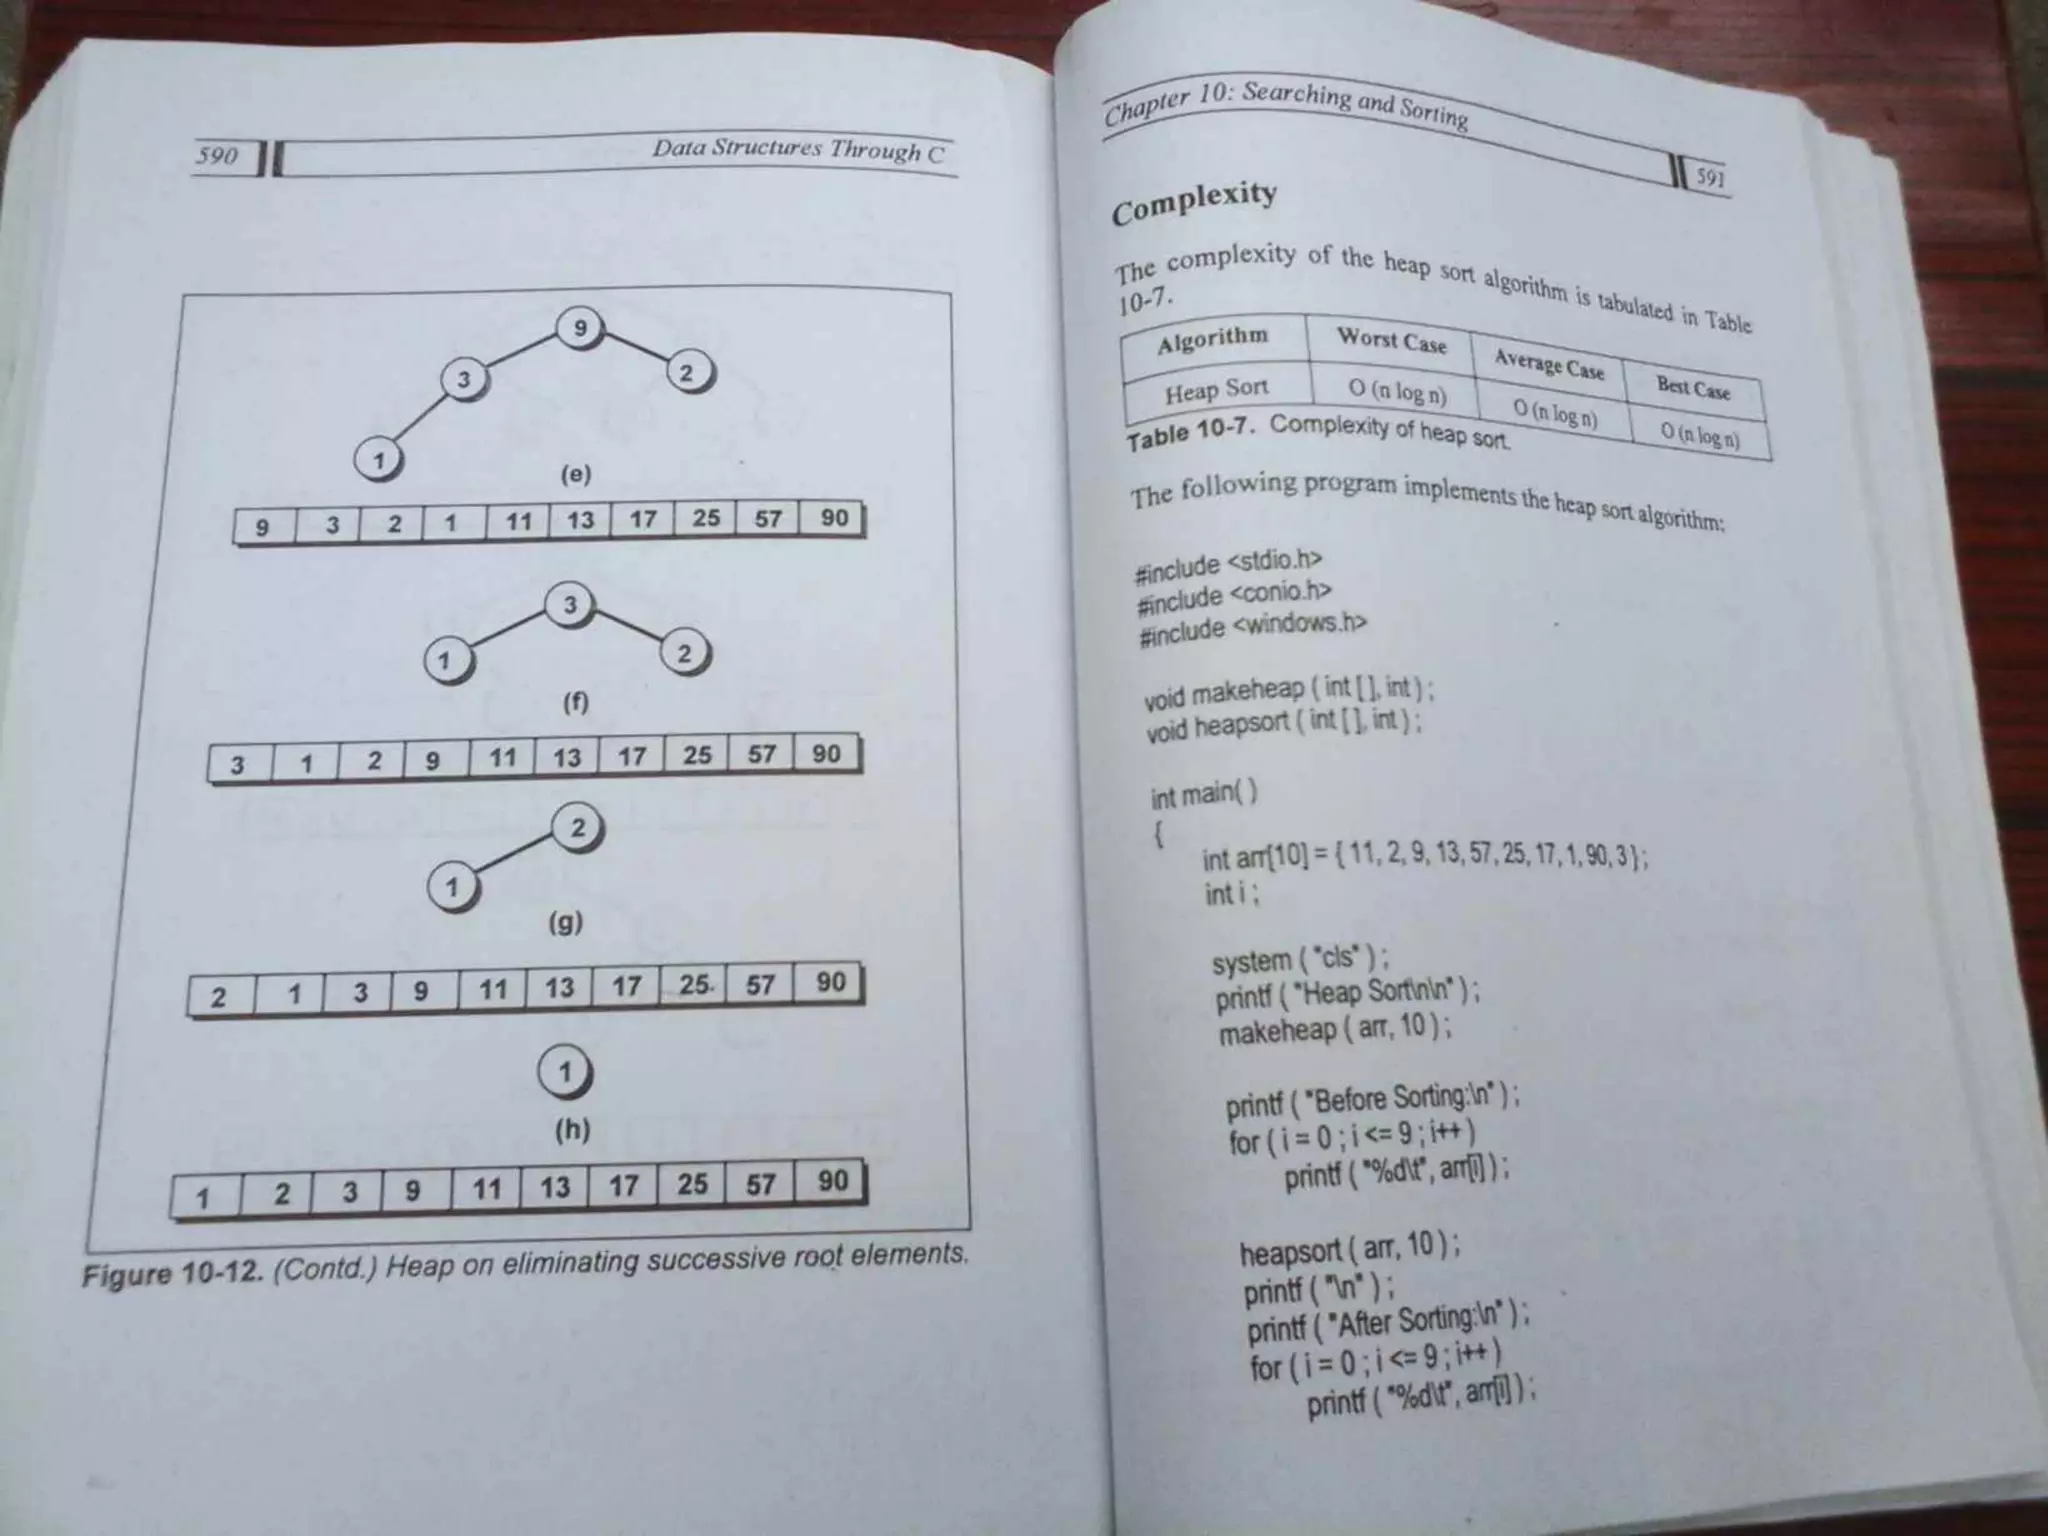 590
Data Structures Through C
9
3
2
1
(e)
9 3 2 1 11 13 17 25 57 90
3
1
2
(f)
3 1 2 9 11 13 17 25 57 90
2
1
(g)
2 1 3 9 11 13 17 25 57 90
1
(h)
1 2 3 9 11 13 17 25 57 90
Figure 10-12. (Contd.) Heap on eliminating successive root elements.
Chapter 10: Searching and Sorting
591
Complexity
The complexity of the heap sort algorithm is tabulated in Table
10-7.
Algorithm Worst Case Average Case Best Case
Heap Sort O (n log n) O (n log n) O (n log n)
Table 10-7. Complexity of heap sort.
The following program implements the heap sort algorithm:
#include <stdio.h>
#include <conio.h>
#include <windows.h>
void makeheap ( int [ ], int ) ;
void heapsort ( int [ ], int ) ;
int main( )
{
int arr[10] = { 11, 2, 9, 13, 57, 25, 17, 1, 90, 3 } ;
int i ;
system ( "cls" ) ;
printf ( "Heap Sort\n\n" ) ;
makeheap ( arr, 10 ) ;
printf ( "Before Sorting:\n" ) ;
for ( i = 0 ; i <= 9 ; i++ )
printf ( "%d\t", arr[i] ) ;
heapsort ( arr, 10 ) ;
printf ( "\n" ) ;
printf ( "After Sorting:\n" ) ;
for ( i = 0 ; i <= 9 ; i++ )
printf ( "%d\t", arr[i] ) ;